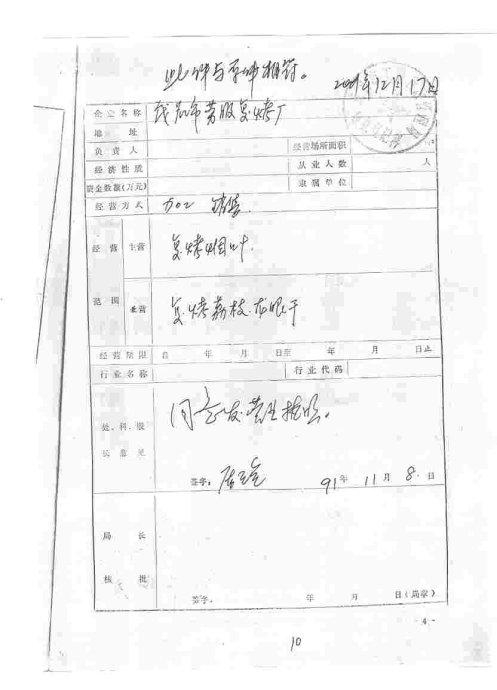 此件与原件相符。
12月17日
企业名称 茂名市劳服复烤厂
地 址
负责人 经营场所面积
经济性质 从业人数 人
资金数额(万元) 隶属单位
经营方式 加工 销售
经营范围 主营 复烤烟叶
兼营 复烤荔枝.龙眼干
经营期限 自 年 月 日至 年 月 日止
行业名称 行业代码
处、科、股长意见 同意发营业执照。
签字: 91年11月8日
局长核批
签字: 年 月 日(局章)
- 4 -
10